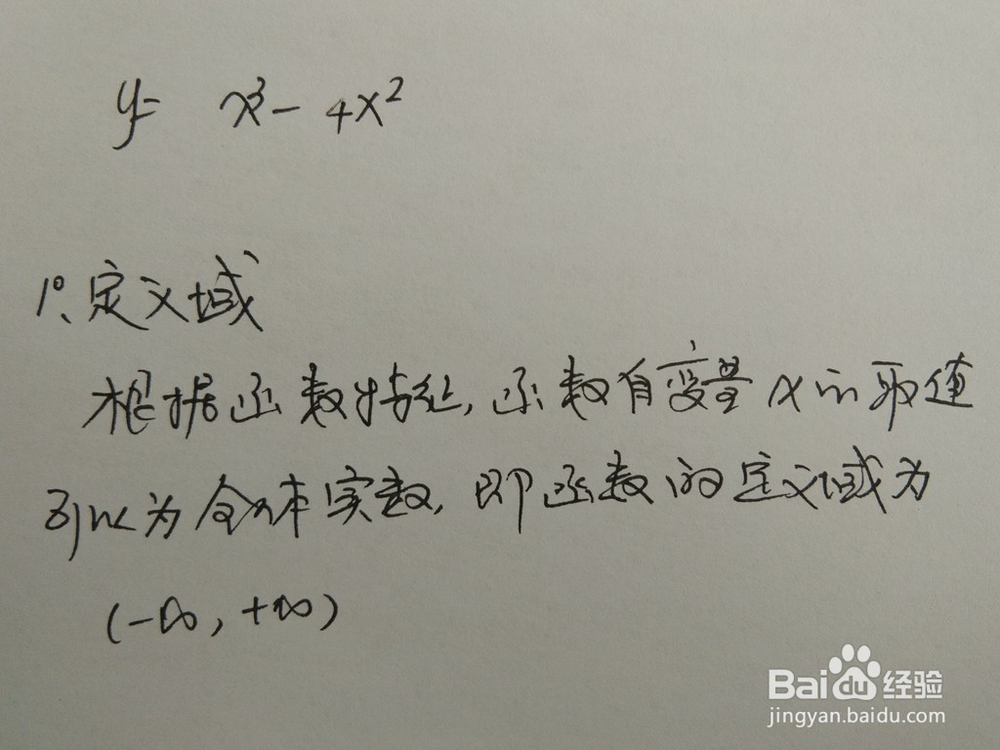 y= x³- 4x²
1°、定义域
根据函数特征,函数自变量x的取值
可以为全体实数,即函数的定义域为
(-∞,+∞)
Baidu 经验
jingyan.baidu.com